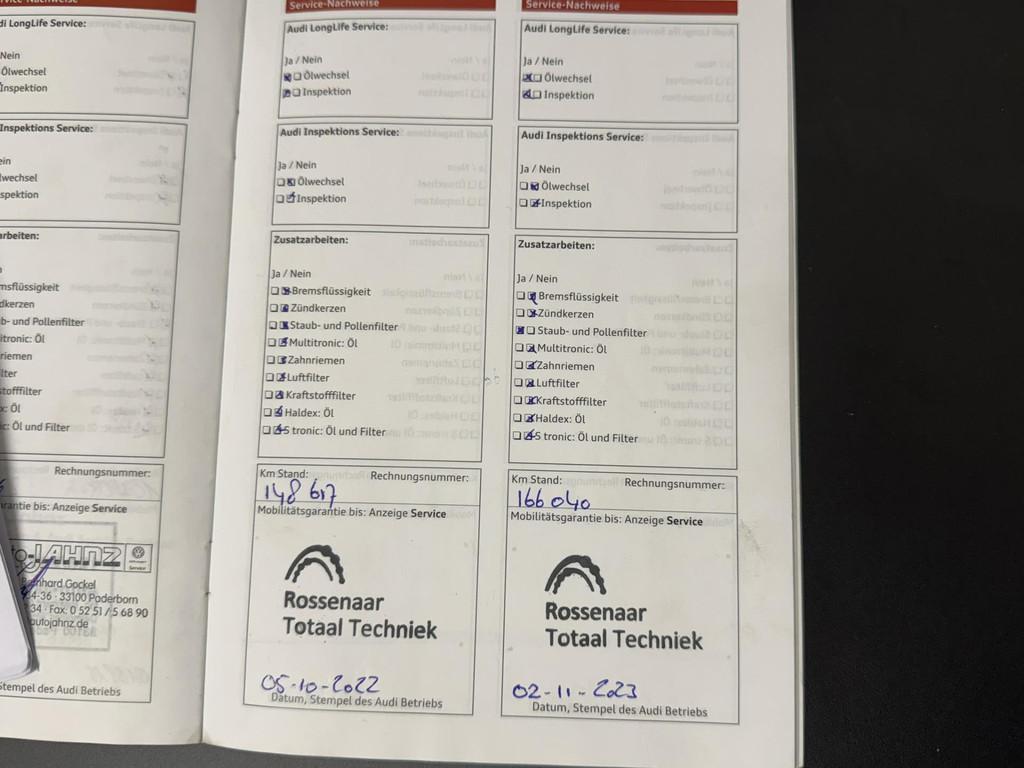 Service-Nachweise
di LongLife Service:
Nein
Ölwechsel
Inspektion
Inspektions Service:
ein
lwechsel
spektion
rbeiten:
msflüssigkeit
dkerzen
b- und Pollenfilter
itronic: Öl
riemen
lter
stofffilter
x: Öl
ic: Öl und Filter
Rechnungsnummer:
rantie bis: Anzeige Service
JAHNZ
Service
Gockel
4-36 · 33100 Paderborn
34 · Fax: 0 52 51 / 5 68 90
autojahnz.de
Stempel des Audi Betriebs
Service-Nachweise
Audi LongLife Service:
Ja / Nein
Ölwechsel
Inspektion
Audi Inspektions Service:
Ja / Nein
Ölwechsel
Inspektion
Zusatzarbeiten:
Ja / Nein
Bremsflüssigkeit
Zündkerzen
Staub- und Pollenfilter
Multitronic: Öl
Zahnriemen
Luftfilter
Kraftstofffilter
Haldex: Öl
S tronic: Öl und Filter
Km Stand: Rechnungsnummer:
148 617
Mobilitätsgarantie bis: Anzeige Service
Rossenaar
Totaal Techniek
05-10-2022
Datum, Stempel des Audi Betriebs
Service-Nachweise
Audi LongLife Service:
Ja / Nein
Ölwechsel
Inspektion
Audi Inspektions Service:
Ja / Nein
Ölwechsel
Inspektion
Zusatzarbeiten:
Ja / Nein
Bremsflüssigkeit
Zündkerzen
Staub- und Pollenfilter
Multitronic: Öl
Zahnriemen
Luftfilter
Kraftstofffilter
Haldex: Öl
S tronic: Öl und Filter
Km Stand: Rechnungsnummer:
166 040
Mobilitätsgarantie bis: Anzeige Service
Rossenaar
Totaal Techniek
02-11-2023
Datum, Stempel des Audi Betriebs